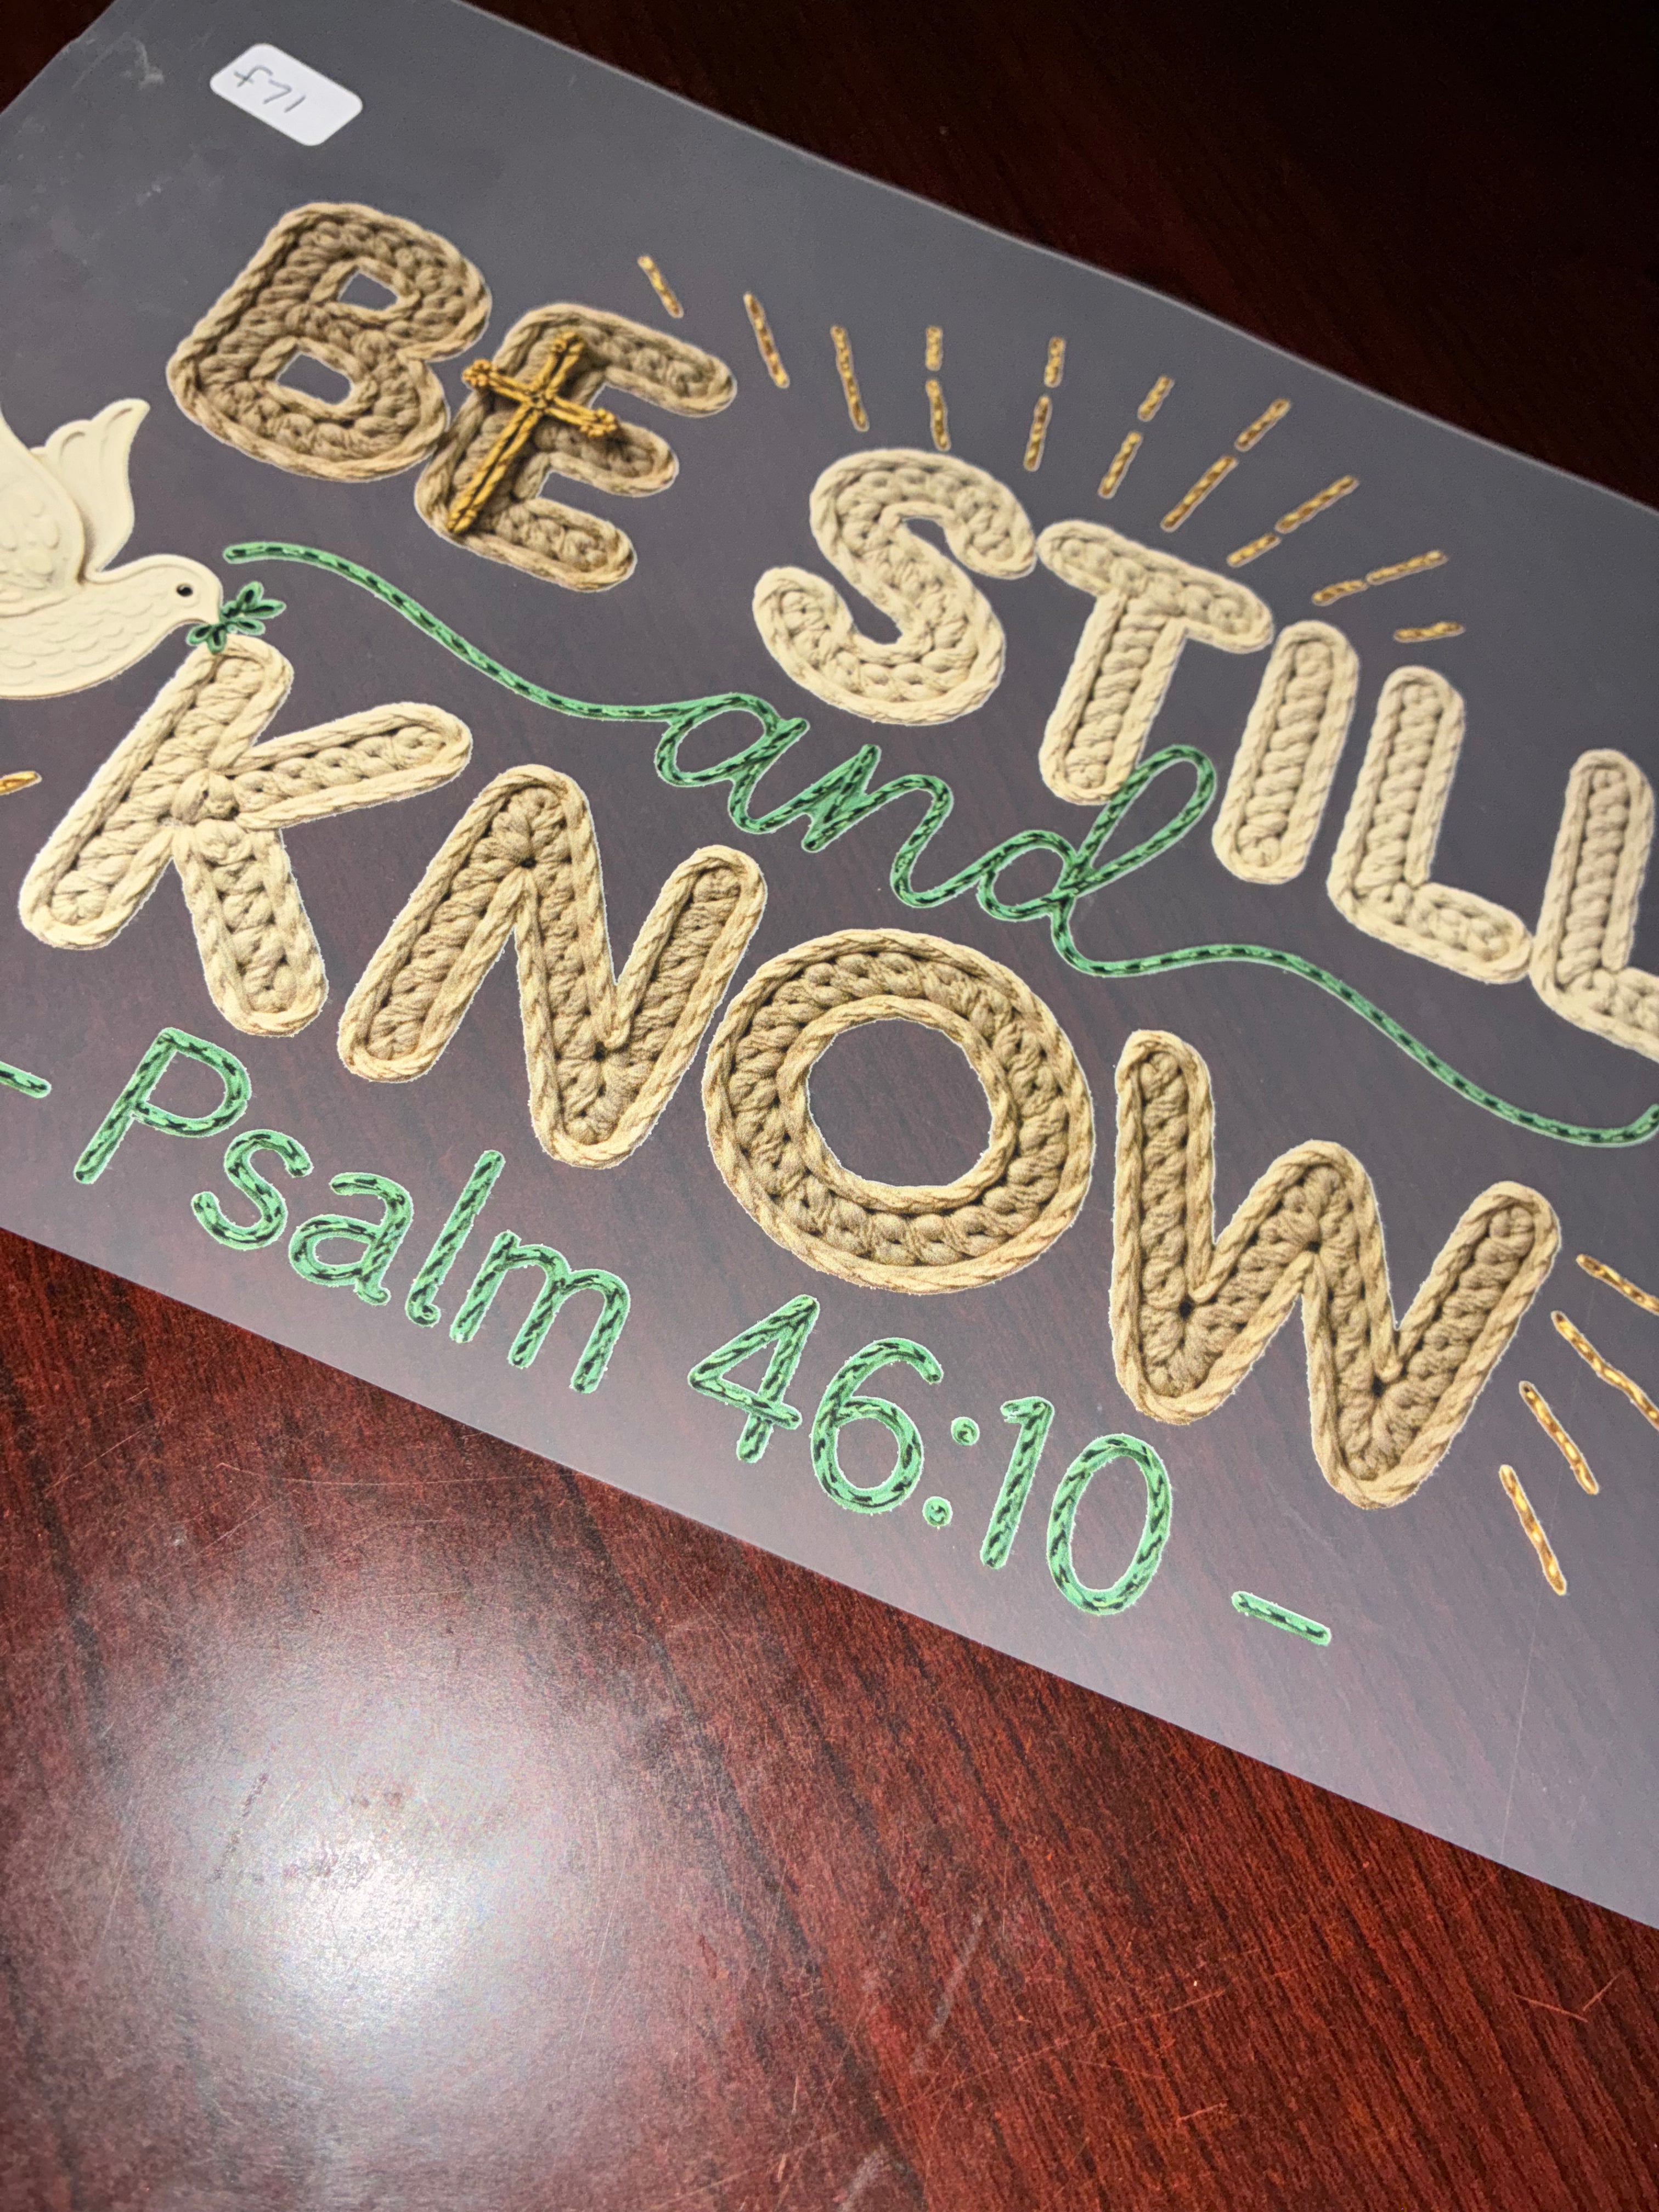 F71
BE STILL
and
KNOW
- Psalm 46:10 -